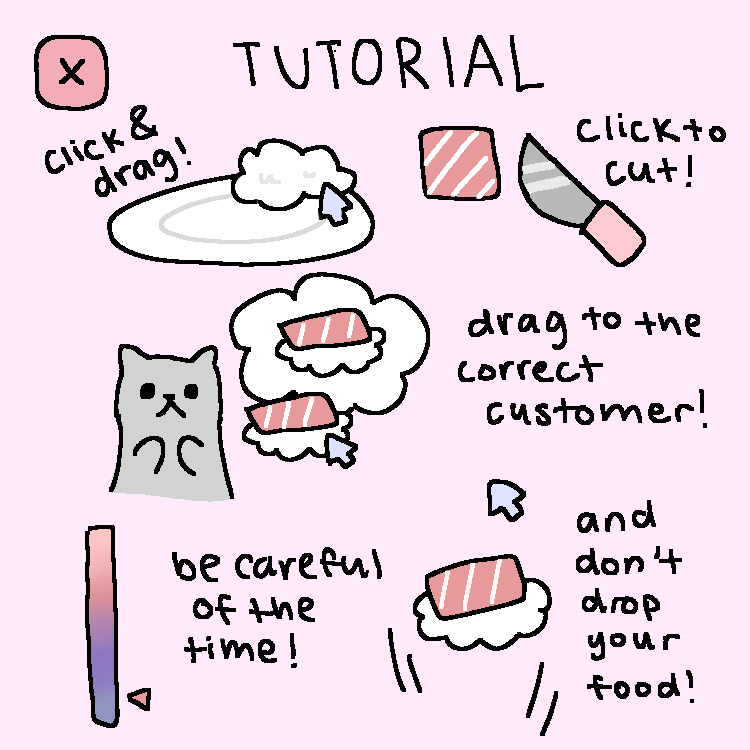 x
TUTORIAL
click &
drag!
click to
cut!
drag to the
correct
customer!
be careful
of the
time!
and
don't
drop
your
food!